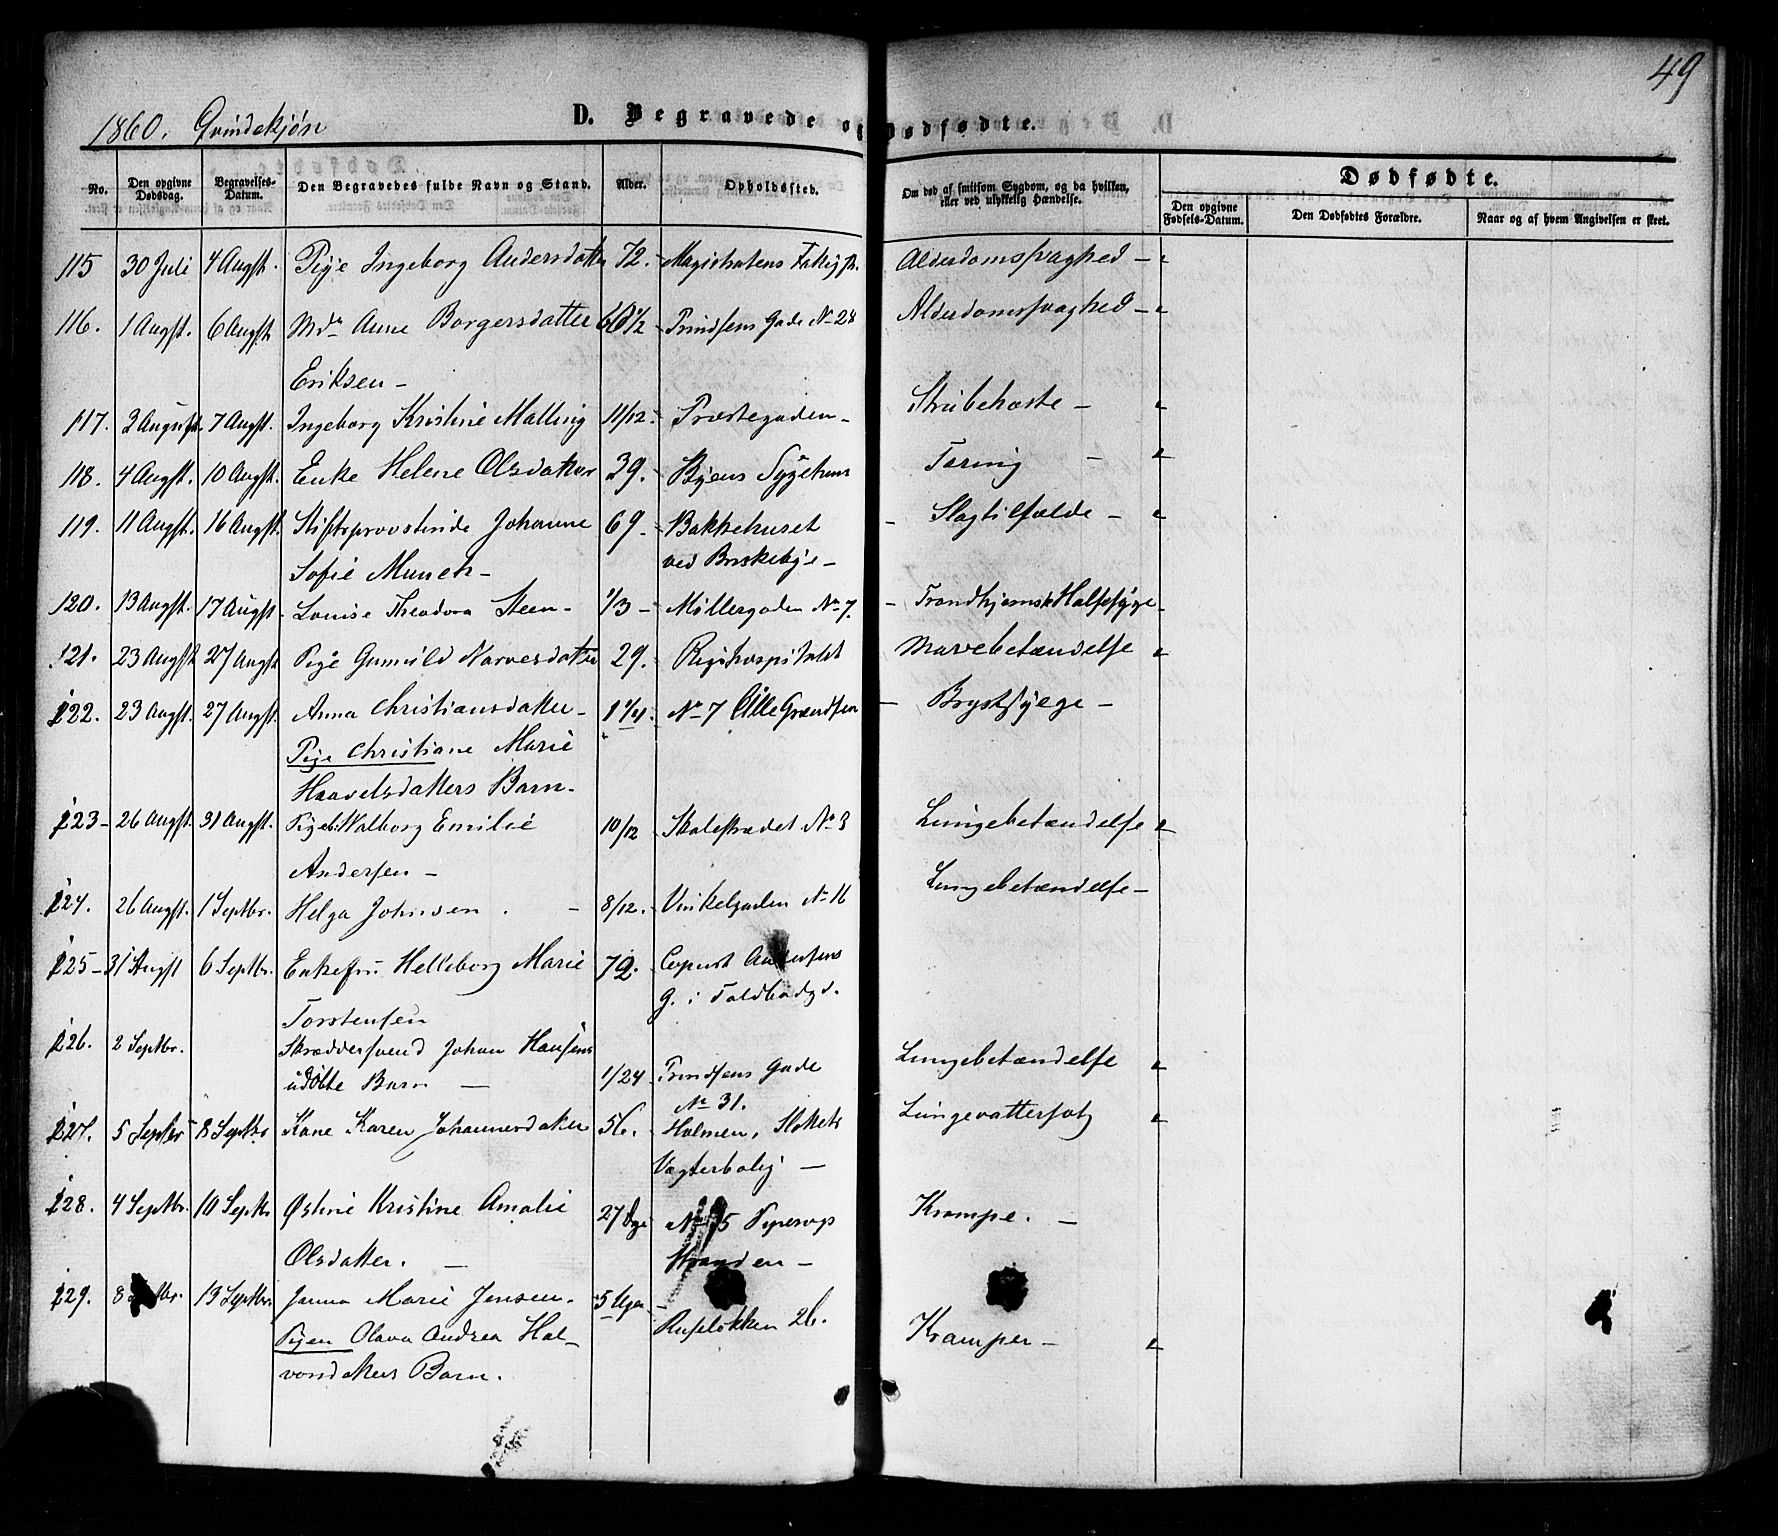 49
1860. Qvindekjøn
D. Begravede og Dødfødte.
No.
Den opgivne Dødsdag.
Begravelses-Datum.
Den Begravedes fulde Navn og Stand.
Alder.
Opholdssted.
Om død af smitsom Sygdom, og da hvilken, eller ved ulykkelig Hændelse.
Dødfødte.
Den opgivne Fødsels-Datum.
Den Dødfødtes Forældre.
Naar og af hvem Angivelsen er skeet.
115 30 Juli 4 Augst. Pige Ingeborg Andersdatter 72. Magistratens Alderdomssvaghed - "
116. 1 Augst. 6 Augst Md. Anne Borgersdatter 60 1/2 Prindsens Gade No 28 Alderdomssvaghed - "
Eriksen -
117. 3 August. 7 Augst. Ingeborg Kristine Malling 11/12. Præstegaden - Strubehoste - "
118. 4 Augst. 10 Augst. Enke Helene Olsdatter 39. Byens Sygehuus Tæring - "
119. 11 Augst. 16 Augst. Stiftsprovstinde Johanne 69. Bakkehuset - Slagtilfælde - "
Sofie Munch - ved Briskebye -
120. 13 Augst. 17 Augst. Louise Theodora Steen - 1/3 - Møllergaden No 7. - Trondhjemsk Halssyge -
121. 23 Augst 27 Augst Pige Gunnild Narvesdatter 29. Rigshospitalet Mavebetændelse "
122. 23 Augst. 27 Augst. Anna Christiansdatter - 1 1/4. No 7 Grændsen - Brystsyge -
Pige Christiane Marie
Haavelsdatters Barn -
123 - 26 Augst. 31 Augst. Pigeb. Valborg Emilie 10/12 Skolestrædet No 3 Lungebetændelse "
Andersen -
124. 26 Augst. 1 Septbr. Helga Johnsen . - 8/12. Vinkelgaden No 16 Lungebetændelse -
125 - 31 Augst 6 Septbr. Enkefru Helleborg Marie 72.
Torstensen G. i Toldbodgd.
126. 2 Septbr. Skræddersvend Johan Hansens 1/24 Prindsens Gade Lungebetændelse "
udøbte Barn - No 31.
127. 5 Septbr 8 Septbr Kone Karen Johannesdatter 56. Holmen, Slottets Lungevattersot "
Vægterbolig -
128. 4 Septbr. 10 Septbr Østine Kristine Amalie 27 Dge No 5 Pipervigs Krampe. -
Olsdatter. - Stranden -
129. 8 Septbr. 13 Septbr. Janna Marie Jensen. 5 Uger - Ruseløkken 26. Kramper - "
Pigen Olava Andrea Hal-
vorsdatters Barn.